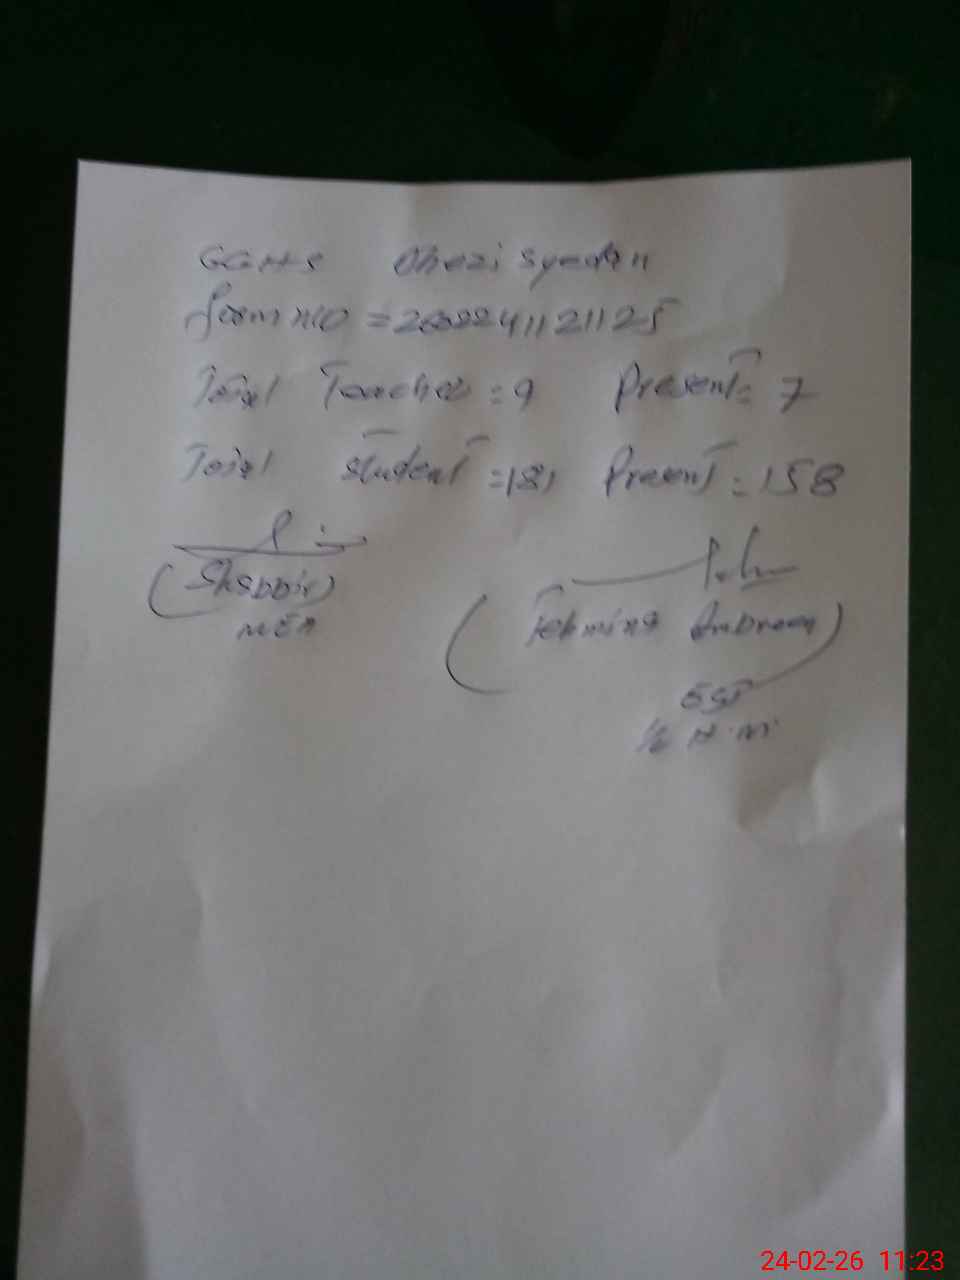 GGHS Dhezi Syedan
form NO = 2602241121125
Total Teacher = 9 Present = 7
Total student = 181 Present = 158
(Shabbir)
MEA
(Tehmina Ambreen)
EST
H.M
24-02-26 11:23